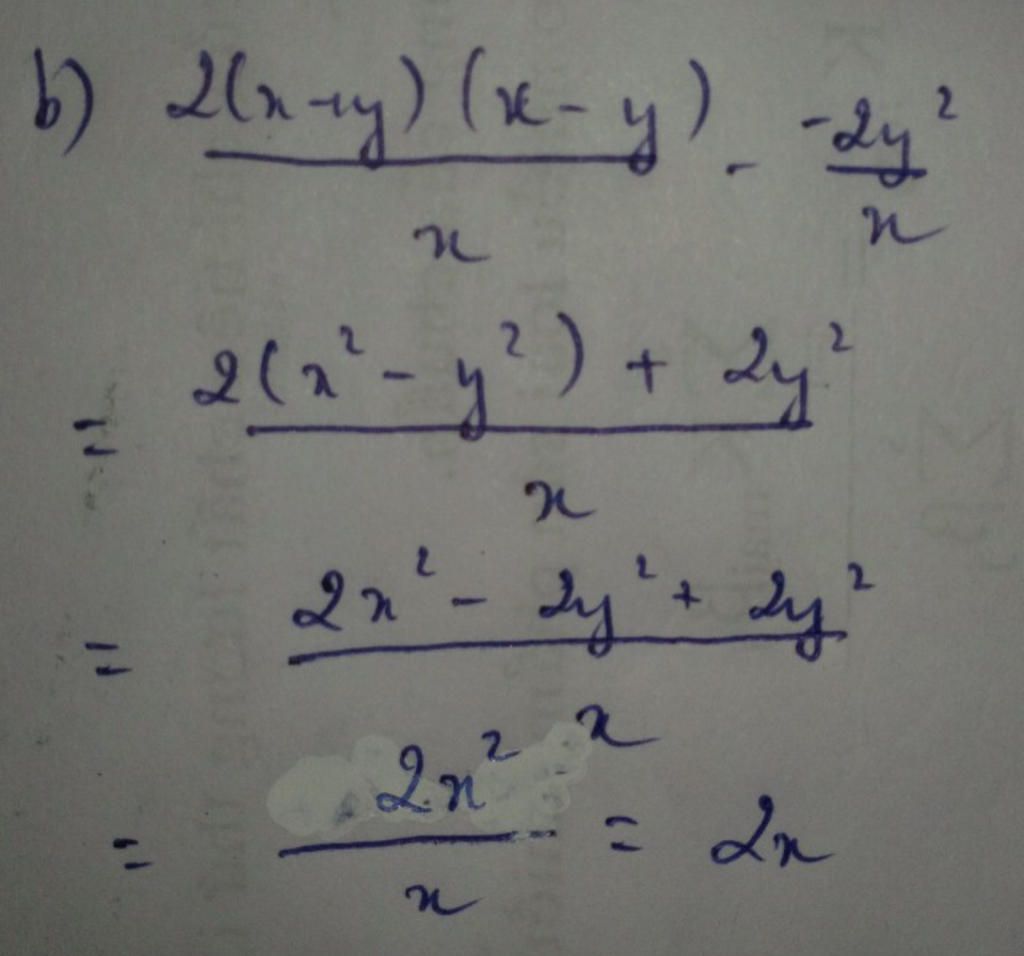 b) 2(x+y)(x-y)/x - -2y²/x
= 2(x²-y²) + 2y²/x
= 2x² - 2y² + 2y²/x
= 2x²/x = 2x